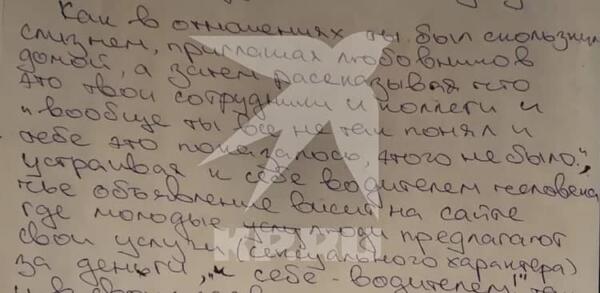 Как в отношениях ты был скользким
слизнем, приглашая любовников
домой, а затем рассказывая что
это твои сотрудники и коллеги и
"вообще ты все не так понял и
тебе это показалось, этого не было",
устраивая к себе водителем человека
чье объявление висит на сайте
где молодые люди предлагают
свои услуги (сексуального характера)
за деньги, "к себе - водителем!"
KP.RU